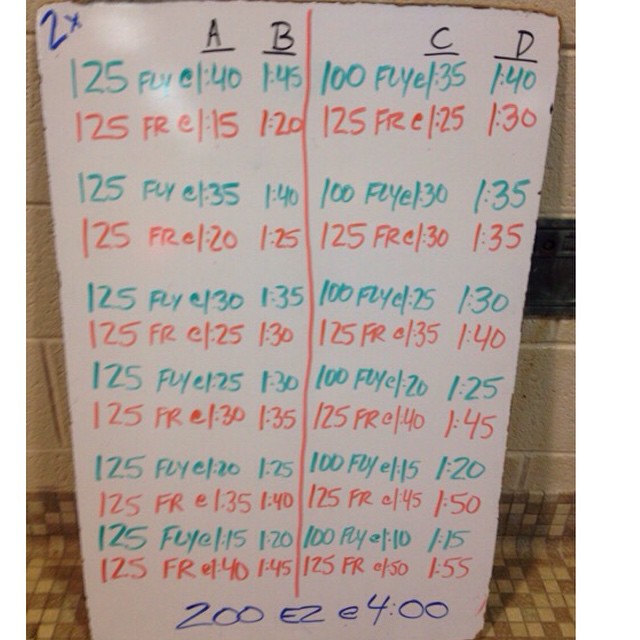 2x
A B C D
125 FLY @ 1:40 1:45 100 FLY @ 1:35 1:40
125 FR @ 1:15 1:20 125 FR @ 1:25 1:30
125 FLY @ 1:35 1:40 100 FLY @ 1:30 1:35
125 FR @ 1:20 1:25 125 FR @ 1:30 1:35
125 FLY @ 1:30 1:35 100 FLY @ 1:25 1:30
125 FR @ 1:25 1:30 125 FR @ 1:35 1:40
125 FLY @ 1:25 1:30 100 FLY @ 1:20 1:25
125 FR @ 1:30 1:35 125 FR @ 1:40 1:45
125 FLY @ 1:20 1:25 100 FLY @ 1:15 1:20
125 FR @ 1:35 1:40 125 FR @ 1:45 1:50
125 FLY @ 1:15 1:20 100 FLY @ 1:10 1:15
125 FR @ 1:40 1:45 125 FR @ 1:50 1:55
200 EZ @ 4:00